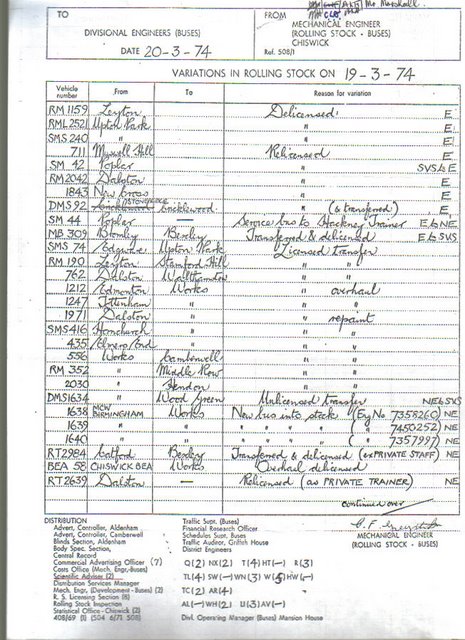 TO
DIVISIONAL ENGINEERS (BUSES)
DATE 20-3-74
FROM Mr. Marshall.
MECHANICAL ENGINEER
(ROLLING STOCK - BUSES)
CHISWICK
Ref. 508/1
VARIATIONS IN ROLLING STOCK ON 19-3-74
Vehicle number From To Reason for variation
RM 1159 Leyton Delicensed E
RML 2521 Upton Park " E
SMS 240 " " E
711 Muswell Hill Relicensed E
SM 42 Poplar " SVS & E
RM 2042 Dalston " E
1843 New Cross " E
DMS 92 Cricklewood " (& transferred) E
SM 44 Poplar — Service bus to Hackney Trainer E & NE
MB 309 Bromley Bexley Transferred & delicensed E & SVS
SMS 74 Edgware Upton Park Licensed transfer
RM 190 Leyton Stamford Hill " "
762 Dalston Walthamstow " "
1212 Edmonton Works " overhaul
1247 Tottenham " " "
1971 Dalston " " repaint
SMS 416 Hornchurch " " "
435 Elmers End " " "
556 Works Camberwell " "
RM 352 " Middle Row " "
2030 " Hendon " "
DMS 1634 " Wood Green Unlicensed transfer NE & SVS
1638 MCW BIRMINGHAM Works New bus into stock (Eng No 7358260) NE
1639 " " " " " ( " 7450252) NE
1640 " " " " " ( " 7357997) NE
RT 2984 Catford Bexley Transferred & delicensed (ex PRIVATE STAFF) NE
BEA 58 CHISWICK BEA Works Overhaul delicensed
RT 2639 Dalston — Relicensed (as PRIVATE TRAINER) NE
continued over
MECHANICAL ENGINEER
(ROLLING STOCK - BUSES)
DISTRIBUTION
Advert, Controller, Aldenham
Advert, Controller, Camberwell
Blinds Section, Aldenham
Body Spec. Section,
Central Record
Commercial Advertising Officer (7)
Costs Office (Mech. Engr.-Buses)
Scientific Adviser (2)
Distribution Services Manager
Mech. Engr. (Development - Buses) (2)
R. S. Licensing Section (8)
Rolling Stock Inspection
Statistical Office - Chiswick (2)
408/69 (1) (504 6/71 508)
Traffic Supt. (Buses)
Financial Research Officer
Schedules Supt. Buses
Traffic Auditor, Griffith House
District Engineers
Q(2) NX(2) T(4) HT(-) R(3)
TL(4) SW(-) WN(3) W(5) HW(-)
TC(2) AR(4)
AL(-) WH(2) U(3) AV(-)
Divl. Operating Manager (Buses) Mansion House